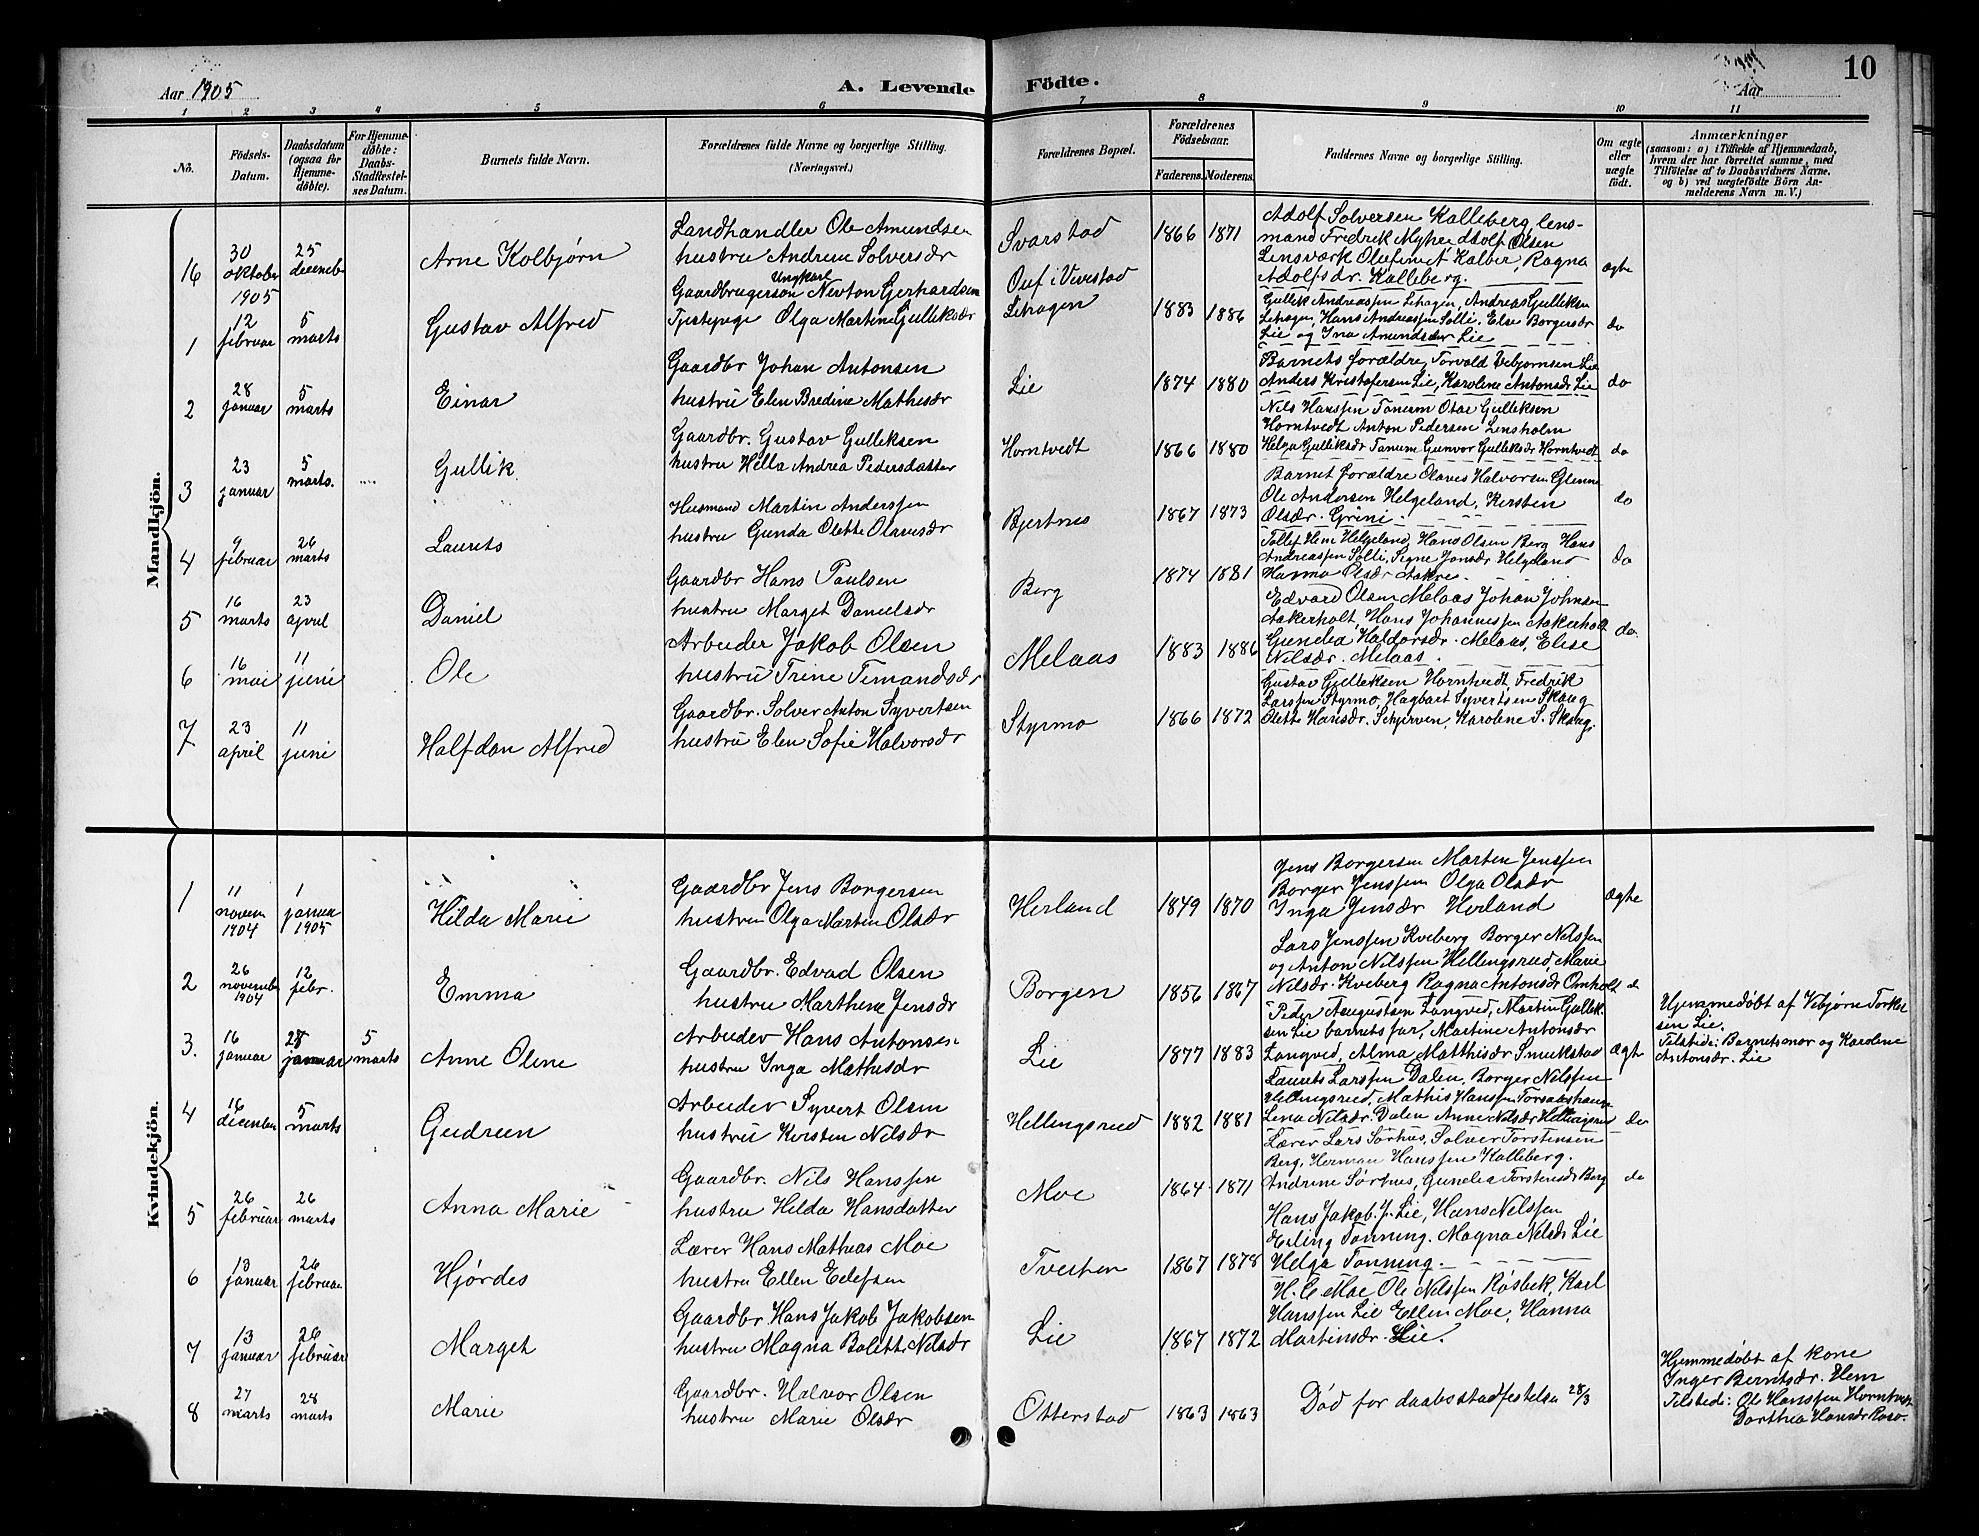 Aar 1905
A. Levende Födte.
Aar
10
1 2 3 4 5 6 7 8 9 10 11
Nö.
Födsels-Datum.
Daabsdatum (ogsaa for Hjemmedöbte).
For Hjemmedöbte: Daabs-Stadfestelses Datum.
Barnets fulde Navn.
Forældrenes fulde Navne og borgerlige Stilling.
(Næringsvei.)
Forældrenes Bopæl.
Forældrenes Födselsaar.
Faderens. Moderens.
Faddernes Navne og borgerlige Stilling.
Om ægte eller uægte födt.
Anmærkninger
(saasom: a) i Tilfælde af Hjemmedaab, hvem der har forrettet samme, med Tilföielse af to Daabsvidners Navne. og b) ved uægtefödte Börn Anmelderens Navn m. V.)
Mandkjön.
16
30 oktober 1905
25 decemb
Arne Kolbjørn
Landhandler Ole Amundsen
hustru Andrine Solversdr
Svarstad
1866 1871
Adolf Solversen Kalleberg, lens-
mand Fredrik Myhre Adolf Olsen
Lensværk Olufine A Kalber, Ragna
Adolfsdr. Kalleberg.
ægte
1
12 februar
5 marts
Gustav Alfred
Ungkarl
Gaardbrugersøn Newton Gerhardsen
Tjestepige Olga Martine Gulliksdr
Ouf i Vivestad
Lihagen
1883 1886
Gullik Andreassen Lihagen, Andreas Gulliksen
Lihagen, Hans Andreassen Solli, Else Borgersdr
Lie og Ina Amundsdr Lie
do
2
28 januar
5 marts
Einar
Gaardbr Johan Antonsen
hustru Elen Bredine Mathisdr
Lie
1874 1880
Barnets forældre, Torvald Vebjørnsen Lie
Anders Kristofersen Lie, Karoline Antonsdr Lie
do
3
23 januar
5 marts.
Gullik
Gaardbr. Gustav Gulliksen
hustru Hella Andrea Pedersdatter
Horntvedt
1866 1880
Nils Hanssen Tanum Otar Gulliksen
Horntvedt Anton Pedersen Lensholm
Helga Gulliksdr Tanum Gunvor Gulliksdr Horntvedt
do
4
9 februar
26 marts
Laurets
Husmand Martin Anderssen
hustru Gunda Olette Olavesdr
Bjertnes
1867 1873
Barnet forældre Olaves Halvorsen Glenne
Ole Andersen Helgeland, Kirsten
Olsdr. Grini.
do
5
16 marts
23 april
Daniel
Gaardbr Hans Paulsen
hustru Marget Danielsdr
Berg
1874 1881
Tollef Hem Helgeland, Hans Olsen Berg Hans
Andreassen Solli, Signe Jonsdr Helgeland
Hanna Olsdr Aakre.
do
6
16 mai
11 juni
Ole
Arbeider Jakob Olsen
hustru Trine Timandsdr
Melaas
1883 1886
Edvard Olsen Melaas Johan Johnsen
Aakerholt, Hans Johannessen Aakerholt
Gunelia Haldorsdr. Melaas, Elise
Nilsdr. Melaas.
do.
7
23 april
11 juni
Halfdan Alfred
Gaardbr. Solver Anton Syvertsen
hustru Elen Sofie Halvorsdr
Styrmo
1866 1872
Gustav Gulliksen Horntvedt, Fredrik
Larssen Styrmo, Hagbart Syvertsen Skaug
Olette Hansdr. Schjerven, Karoline S. Skaug.
Kvindekjön.
1
11 novem 1904
1 janua 1905
Hilda Marie
Gaardbr Jens Borgersen
hustru Olga Martine Olsdr
Herland
1849 1870
Jens Borgersen Marten Jenssen
Borger Jenssen Olga Olsdr
Inga Jensdr Herland
ægte
2
26 novembe 1904
12 febr.
Emma
Gaardbr. Edvad Olsen
hustru Marthine Jensdr
Borgen
1856 1867
Lars Jenssen Kveberg Borger Nilssen
og Anton Nilssen Hellingsrud, Marie
Nilsdr. Kveberg Ragna Antonsdr Omholt
d
3.
16 januar
28 januar
5 marts
Anne Oline
Arbeider Hans Antonsen
hustru Inga Mathisdr
Lie
1877 1883
Peder Augustsen Langved, Martin Gullik-
sen Lie barnets far, Martine Antonsdr
Langved, Alma Matthisdr Smukstad
Ægte
Hjemmedøbt af Vebjørn Torkel
sen Lie.
Tilstede: Barnets mor og Karoline
Antonsdr. Lie
4
16 december
5 marts
Gudrun
Arbeider Syvert Olsen
hustru Kirsten Nilsdr
Hellingsrud
1882 1881
Laurets Larssen Dalen. Borger Nilssen
Hellingsrud, Mathis Hanssen
Lena Nilsdr. Dalen Anne Nilsdr Hellingsrud
do
5
26 februar
26 marts
Anna Marie
Gaardbr. Nils Hanssen
hustru Hilda Hansdatter
Moe
1864 1871
Lærer Lars Sørhus, Solver Torstensen
Berg, Herman Hanssen Kalleberg.
Andrine Sørhus, Gunelia Torstensdr Berg
do
6
13 januar
26 februar
Hjørdes
Lærer Hans Mathias Moe
hustru Ellen Eilefsen
Tveiten
1867 1878
Hans Jakob J. Lie, Hans Nilssen
Erling Tonning. Magna Nilsdr Lie
Helga Tonning.
7
13 januar
26 februar
Marget
Gaardbr Hans Jakob Jakobsen
hustru Magna Bolette Nilsdr
Lie
1867 1872
H. C Moe Ole Nilssen Røsbek, Karl
Hanssen Lie Ellen Moe, Hanna
Martinsdr. Lie.
8
27 marts
28 marts
Marie
Gaardbr. Halvor Olsen
hustru Marie Olsdr
Otterstad
1863 1863
Død før daabsstadfestelsen 28/3
Hjemmedøbt af kone
Inger Berntsdr. Hem
Tilstede: Ole Hanssen Horntvedt
Dorthea Hansdr Roso.